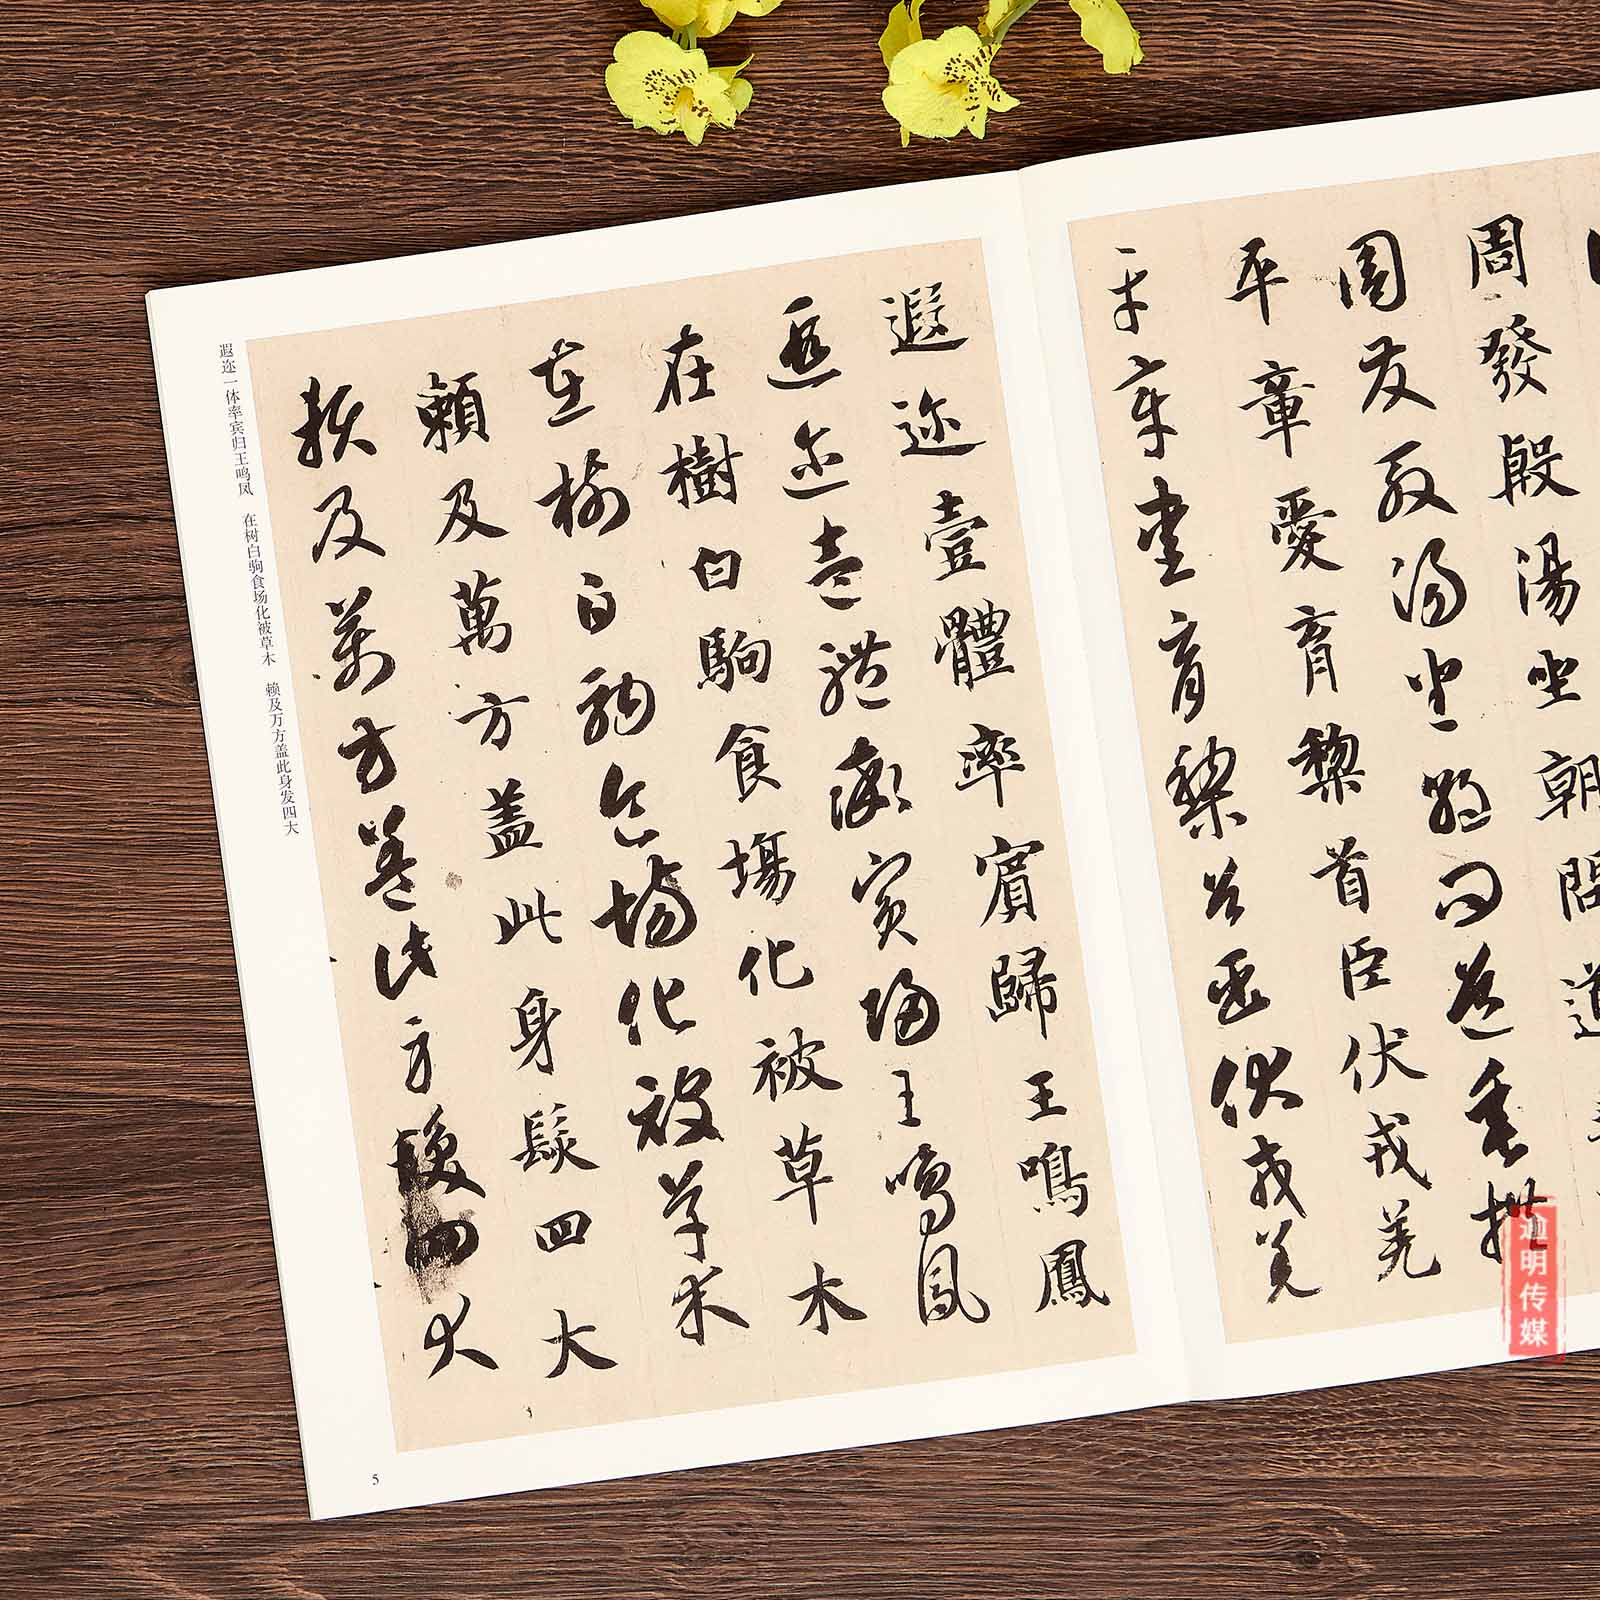 周發殷湯坐朝問道
周發殷湯坐朝問道垂拱
平章愛育黎首臣伏戎羌
平章愛育黎首臣伏戎羌
遐迩壹體率賓歸王鳴鳳
遐迩壹體率賓歸王鳴鳳
在樹白駒食塲化被草木
在樹白駒食塲化被草木
賴及萬方蓋此身髮四大
賴及萬方蓋此身髮四大
遐迩一体率宾归王鸣凤 在树白驹食场化被草木 赖及万方盖此身发四大
5
明传媒